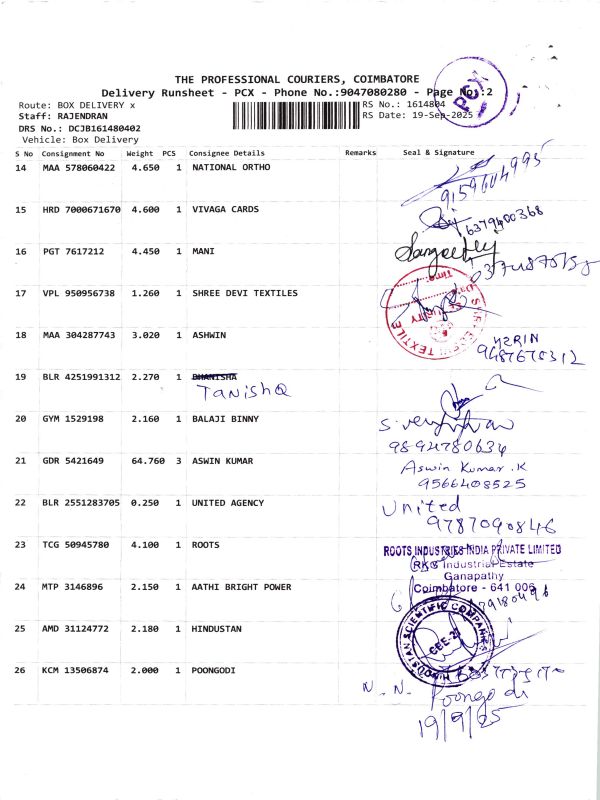 THE PROFESSIONAL COURIERS, COIMBATORE
Delivery Runsheet - PCX - Phone No.:9047080280 - Page No.:2
PCX
Route: BOX DELIVERY x
RS No.: 1614804
Staff: RAJENDRAN
RS Date: 19-Sep-2025
DRS No.: DCJB161480402
Vehicle: Box Delivery
S No Consignment No Weight PCS Consignee Details Remarks Seal & Signature
14 MAA 578060422 4.650 1 NATIONAL ORTHO
9159604995
15 HRD 7000671670 4.600 1 VIVAGA CARDS
6379400368
16 PGT 7617212 4.450 1 MANI
Sangeetha
17 VPL 950956738 1.260 1 SHREE DEVI TEXTILES
TEXTILE
18 MAA 304287743 3.020 1 ASHWIN
9487670312
19 BLR 4251991312 2.270 1 BHANISHA
TanishQ
20 GYM 1529198 2.160 1 BALAJI BINNY
9894780634
21 GDR 5421649 64.760 3 ASWIN KUMAR
Aswin Kumar.K
9566408525
22 BLR 2551283705 0.250 1 UNITED AGENCY
United
9787090846
23 TCG 50945780 4.100 1 ROOTS
ROOTS INDUSTRIES INDIA PRIVATE LIMITED
RKG Industrial Estate
Ganapathy
Coimbatore - 641 006
24 MTP 3146896 2.150 1 AATHI BRIGHT POWER
25 AMD 31124772 2.180 1 HINDUSTAN
HINDUSTAN SCIENTIFIC COMPANIES
CBE-21
26 KCM 13506874 2.000 1 POONGODI
N. N. Poongodi
19/9/25